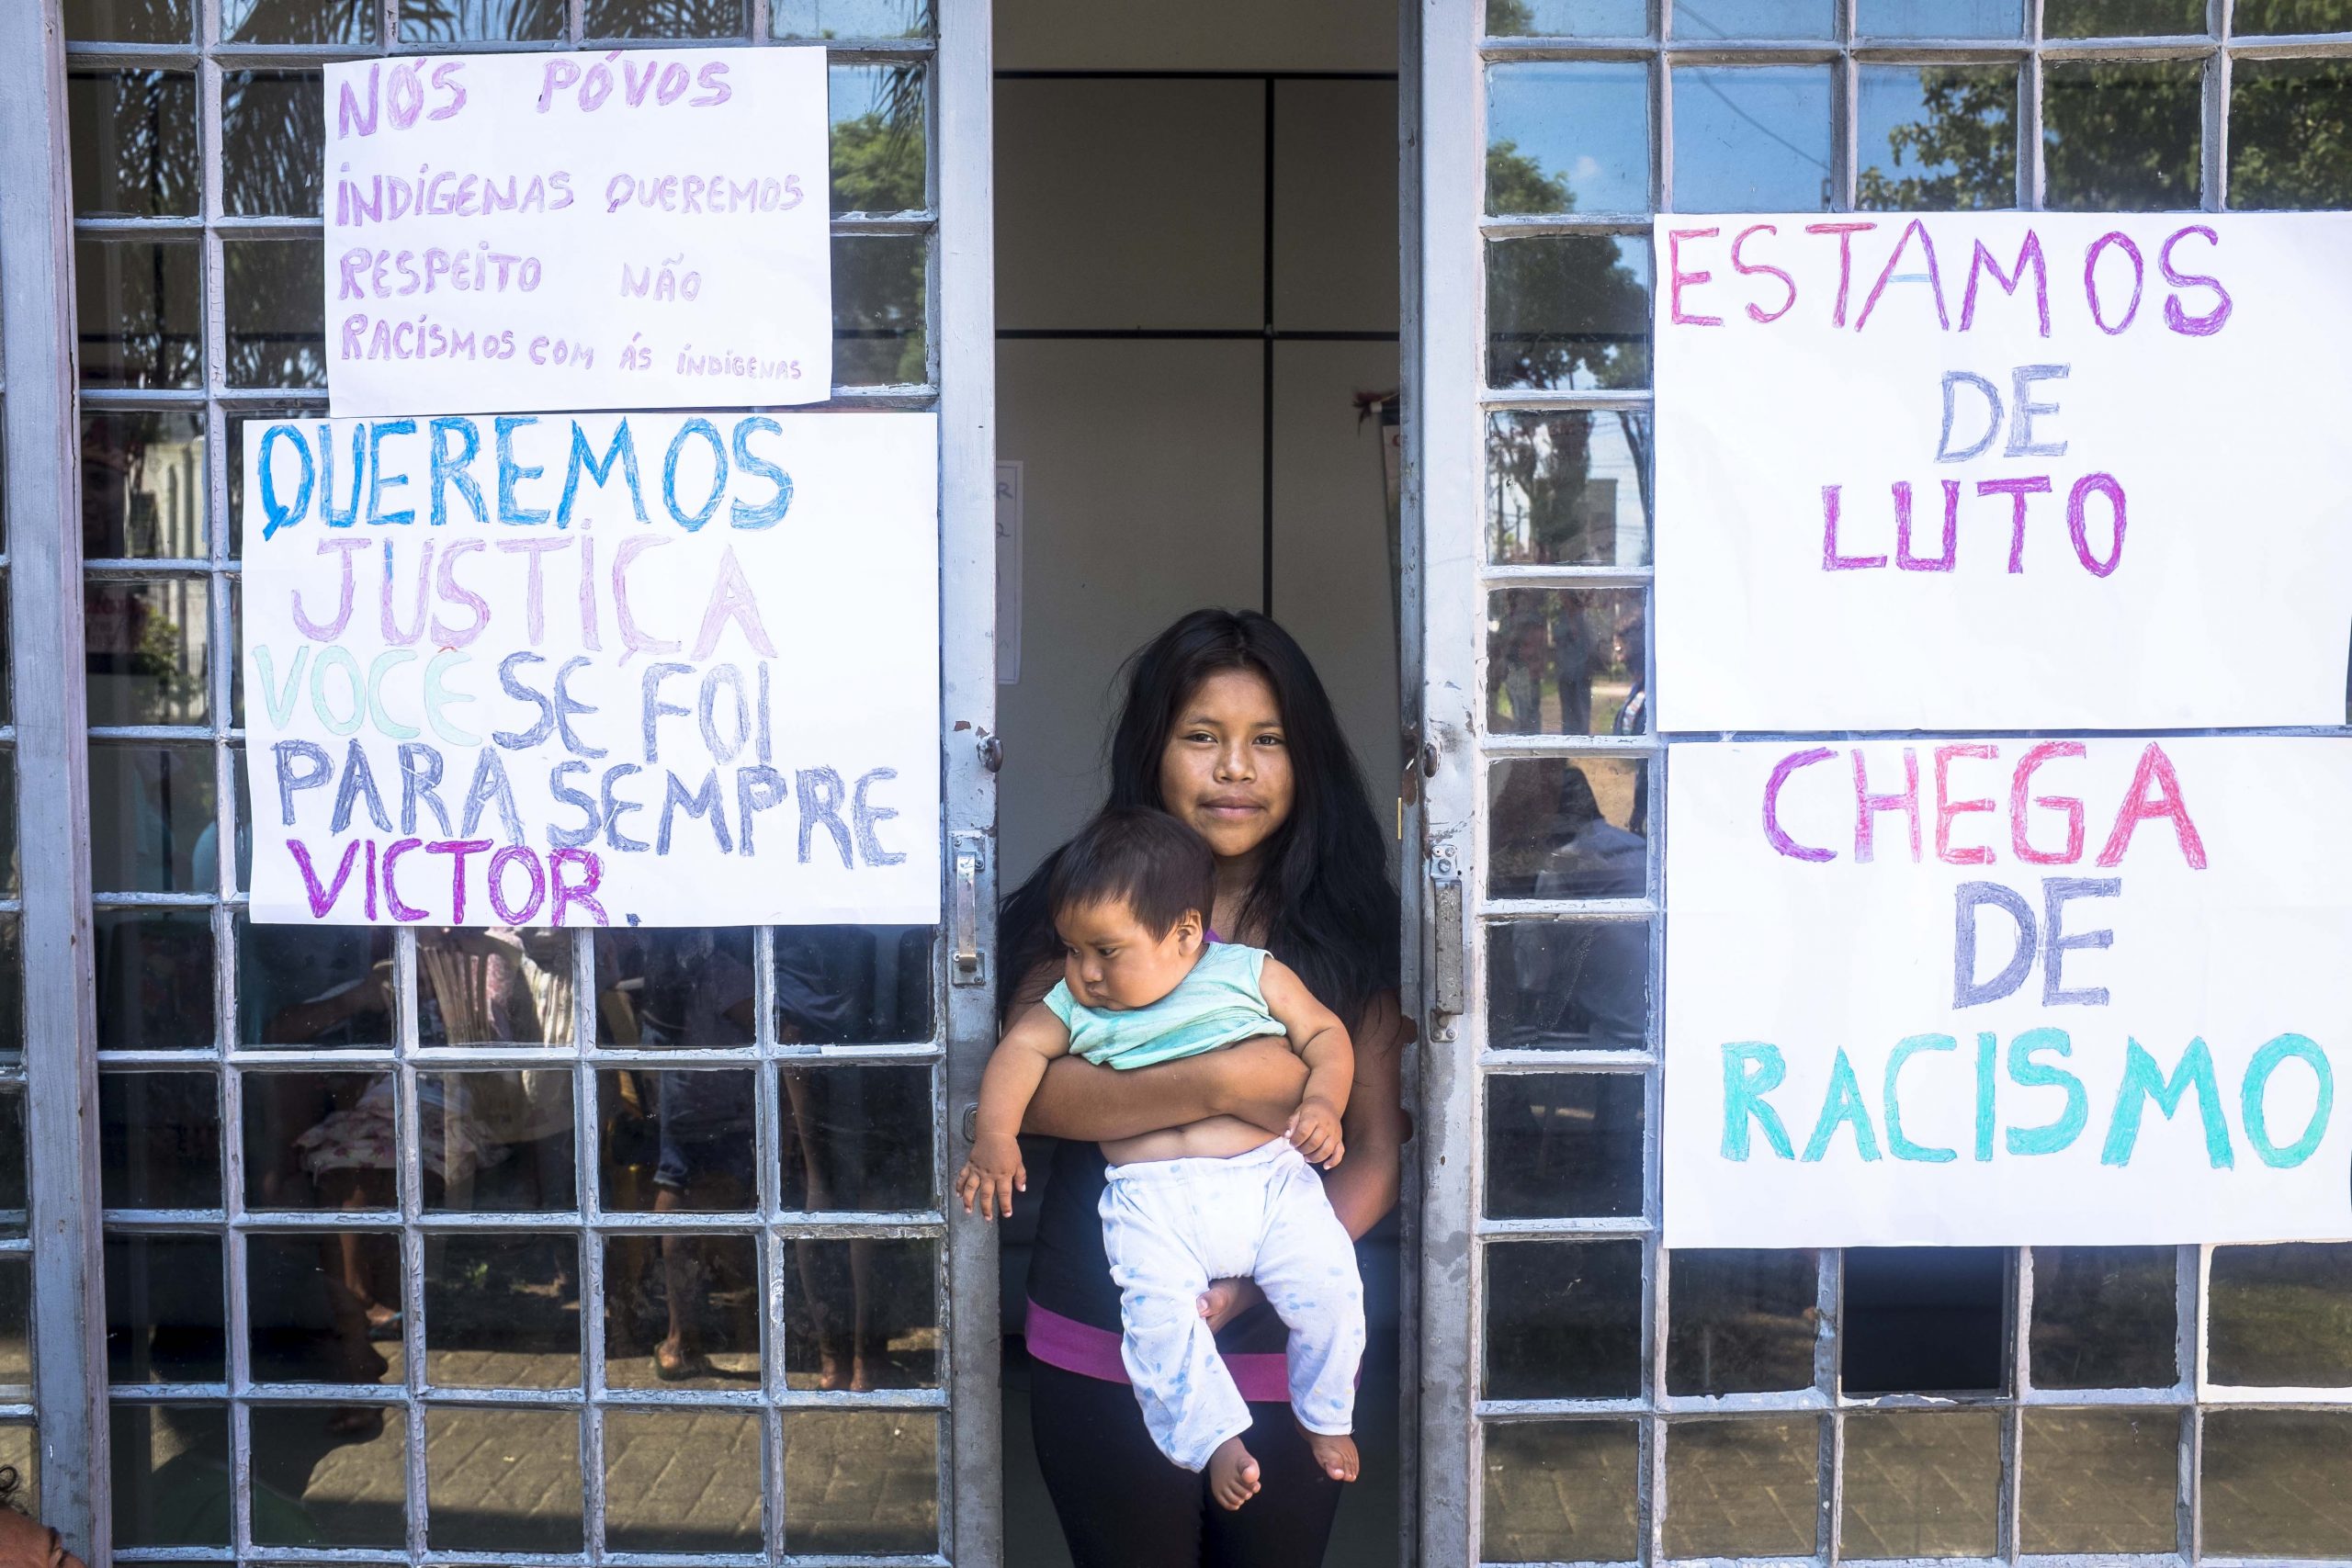 NÓS PÓVOS
INDÍGENAS QUEREMOS
RESPEITO NÃO
RACÍSMOS COM ÁS ÍNDÍGENAS
QUEREMOS
JUSTIÇA
VOCÊ SE FOI
PARA SEMPRE
VICTOR.
ESTAMOS
DE
LUTO
CHEGA
DE
RACISMO